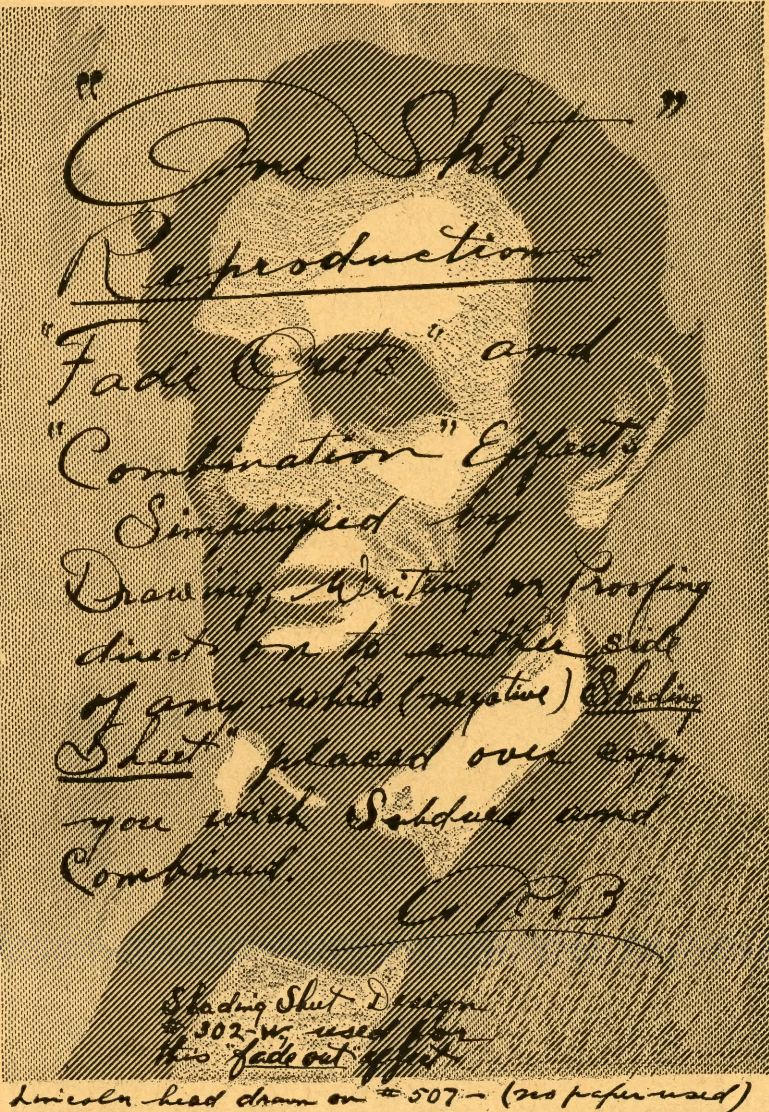 "One Shot"
Reproductions
"Fade Outs" and
"Combination" Effects
Simplified by
Drawing, Writing or Proofing
direct on to either side
of any white (negative) "Shading
Sheet" placed over copy
you wish Subdued and
Combined.
Shading Sheet Design
#302-W used for
this "fade out" effect.
Lincoln head drawn on #507 - (no paper used)